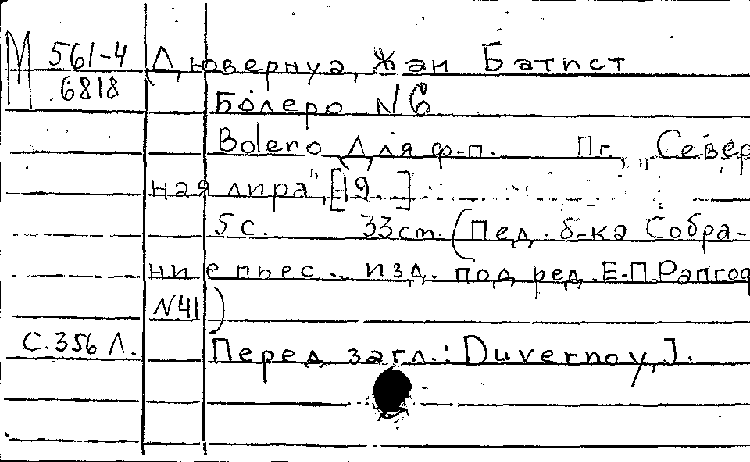 М 561-4 Дювернуа, Жан Батист
6818
Болеро N6
Bolero Для ф-п. Пг., „Север
ная лира", [19. ]
5 с. 33 cm. (Пед. б-ка Собра-
ние пьес... изд. под ред. Е.П.Рапгоф
N41)
С.356 Л. Перед загл.: Duvernoy, J.